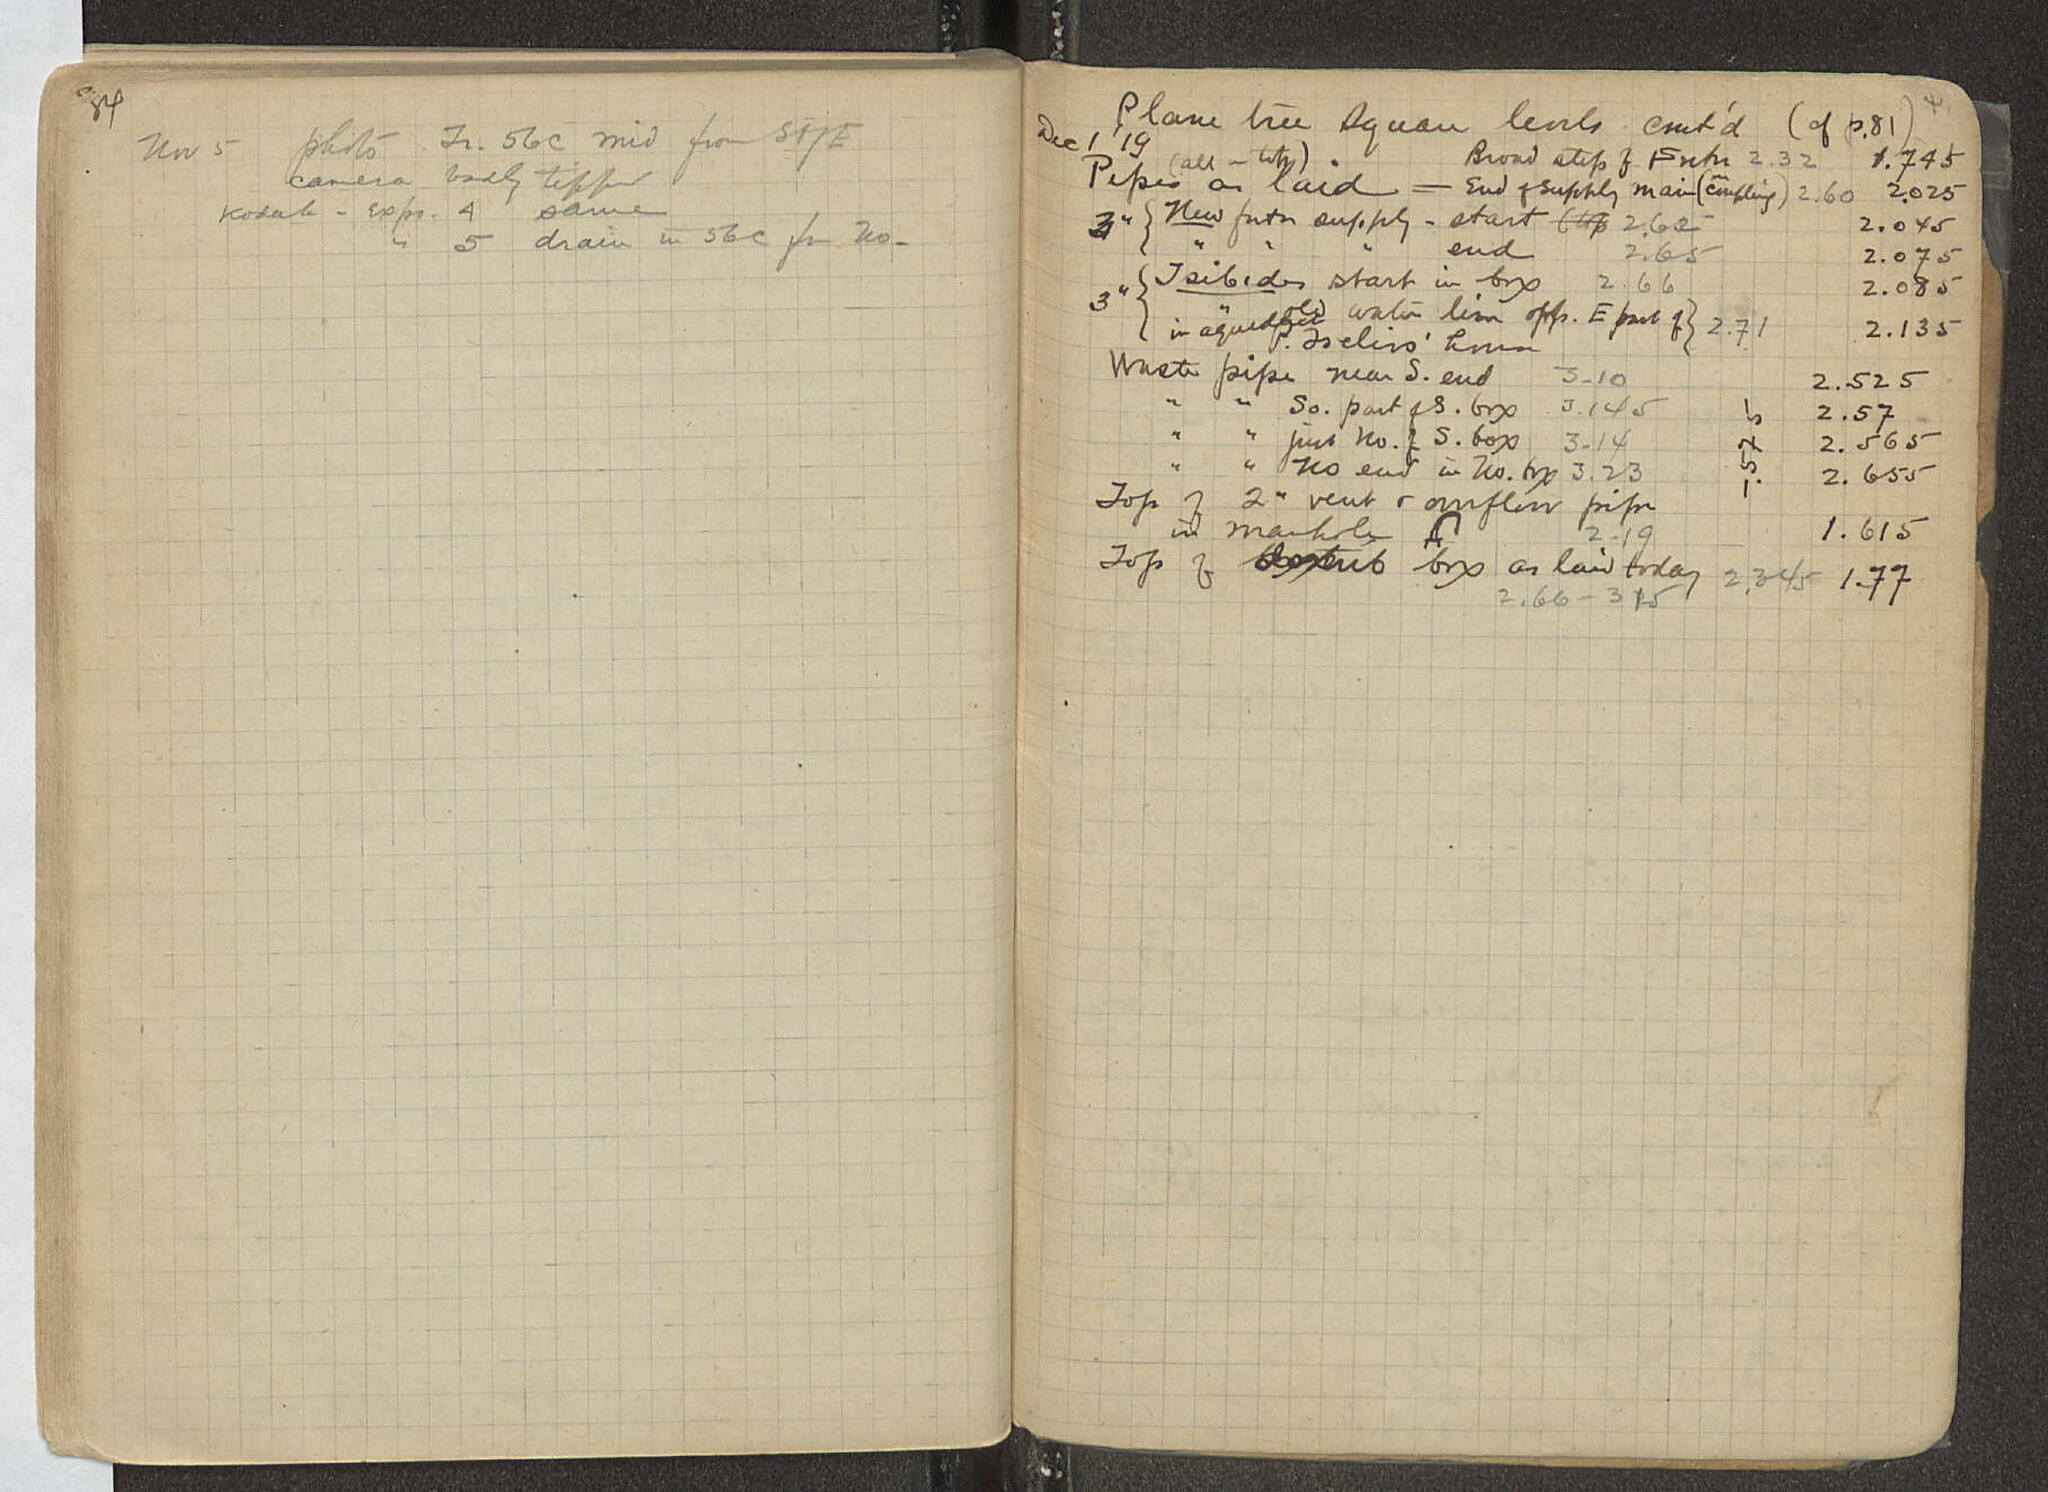 84
Nov 5 photo Tr. 56C mid from S of E
camera badly tipped
Kodak - Expo. 4 same
" 5 drain in 56C fr No.
Plane tree Square levels cont'd (cf p.81)
Dec 1 '19
(all = top) Broad step of Fntn 2.32 1.745
Pipes as laid = End of supply main (coupling) 2.60 2.025
3" { New fntn supply - start 2.62 2.045
" " " end 2.65 2.075
3" { Tsibides start in box 2.66 2.085
" old water line opp. E part of } 2.71 2.135
in aqueduct P. Iselins' house
Waste pipe near S. end 3.10 2.525
" " So. part of S. box 3.145 2.57
" " just No. of S. box 3.14 2.565
" " No end in No. box 3.23 2.655
-.575
Top of 2" vent & overflow pipe
in manhole 2.19 1.615
Top of box as laid today 2.345 1.77
2.66 - 315